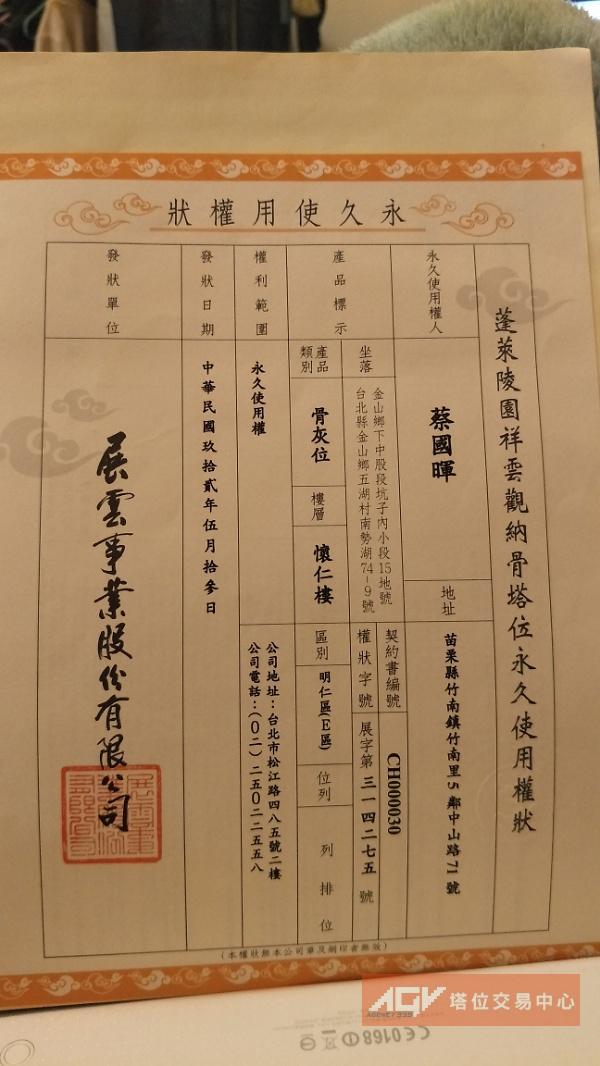 永久使用權狀
蓬萊陵園祥雲觀納骨塔位永久使用權狀
永久使用權人
蔡國暉
地址
苗栗縣竹南鎮竹南里5鄰中山路71號
產品標示
坐落
金山鄉下中股段坑子內小段15地號
台北縣金山鄉五湖村南勢湖74-9號
契約書編號
CH000030
權狀字號
展字第三一四二七五號
產品類別
骨灰位
樓層
懷仁樓
區別
明仁區(E區)
位列
列 排 位
權利範圍
永久使用權
公司地址:台北市松江路四八五號二樓
公司電話:(〇二)二五〇二二五五八
發狀日期
中華民國玖拾貳年伍月拾參日
發狀單位
展雲事業股份有限公司
(本權狀無本公司章及鋼印者無效)
AGV 塔位交易中心
CE0168